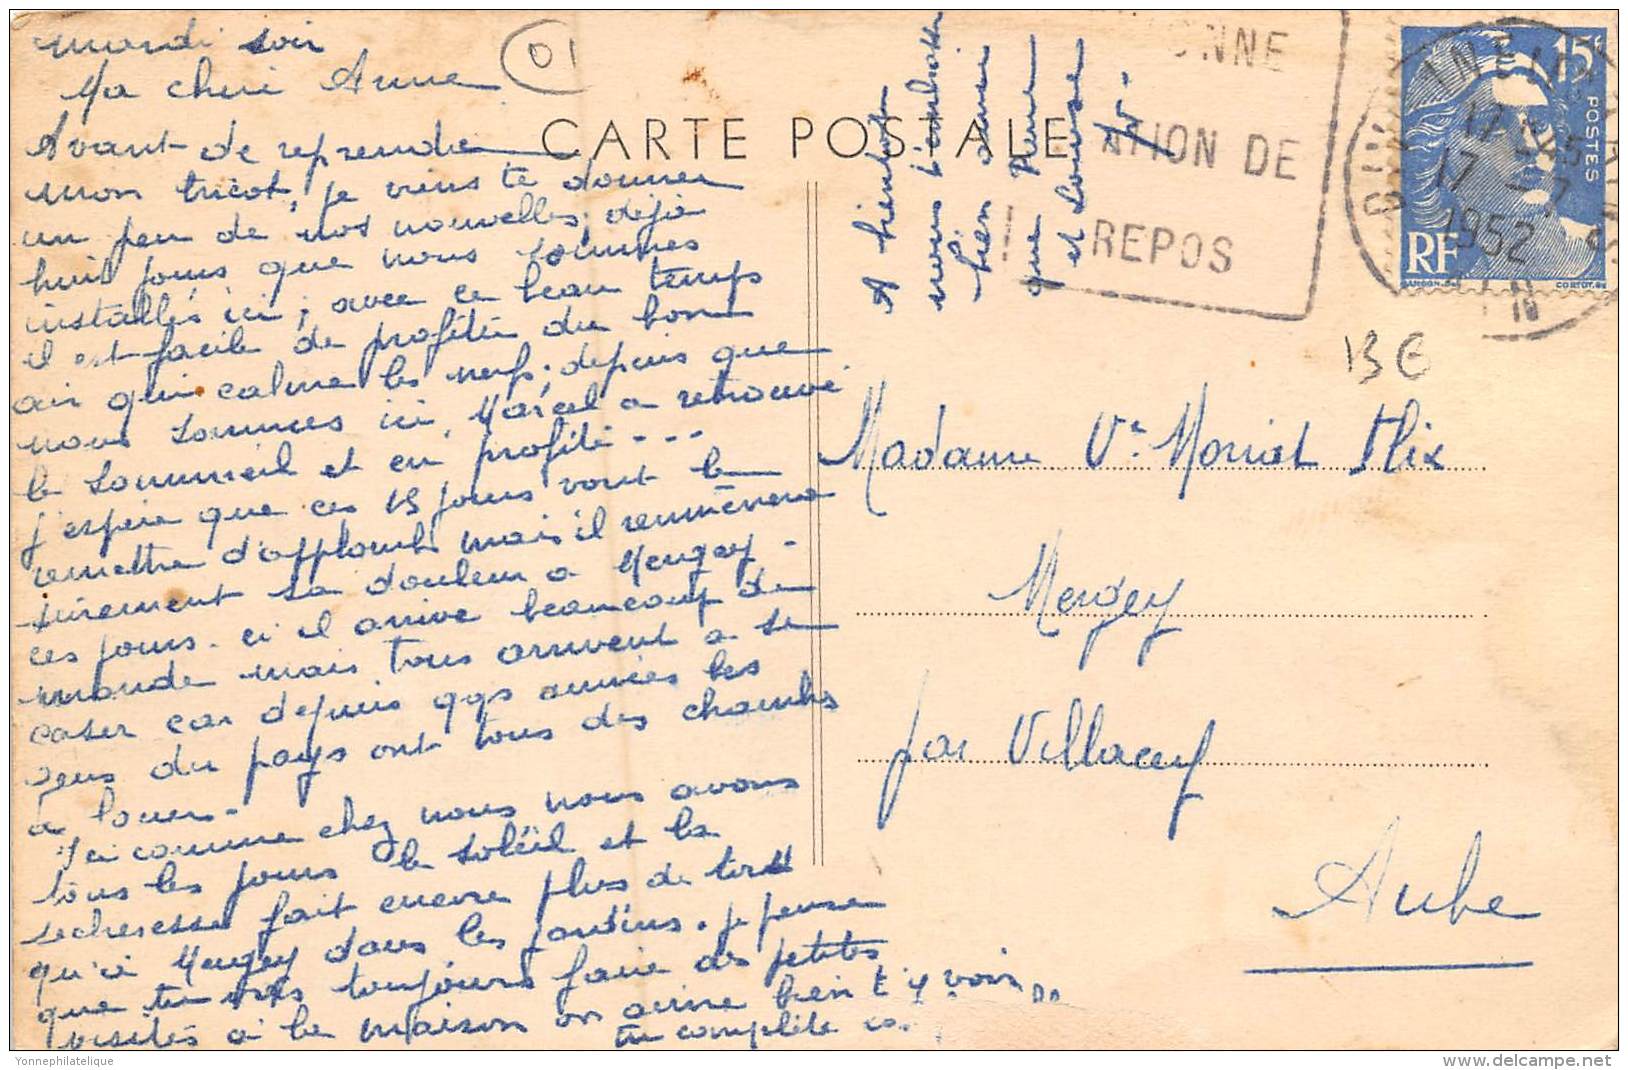 mardi soir
Ma cherie Anne
Avant de reprendre
mon tricot, je viens te donner
un peu de nos nouvelles, déjà
huit jours que nous sommes
installés ici ; avec ce beau temps
il est facile de profiter du bon
air qui calme les nerfs, depuis que
nous sommes ici, Marcel a retrouvé
le sommeil et en profite - - -
J'espère que ces 15 jours vont le
remettre d'applomb mais il remmènera
surement sa douleur a Mergey -
ces jours-ci il arrive beaucoup de
monde mais tous arrivent a se
caser car depuis qqs années les
gens du pays ont tous des chambres
a louer -
Ici comme chez nous nous avons
tous les jours le soleil et la
secheresse fait encore plus de tord
qu'à Mergey dans les jardins. je pense
que tu vas toujours faire des petites
visites à la maison on aime bien t'y voir
tu complète
A bientot
nous t'embrassons
bien amies
que Rene
et Louise
01
CARTE POSTALE
ONNE
ATION DE
REPOS
17 - 7
1952
15F
POSTES
RF
GANDON.DEL
CORTOT.SC
13 €
Madame Ve Moniot Flix
Mergey
par Villacerf
Aube
Yonnephilatelique
delcampe.net